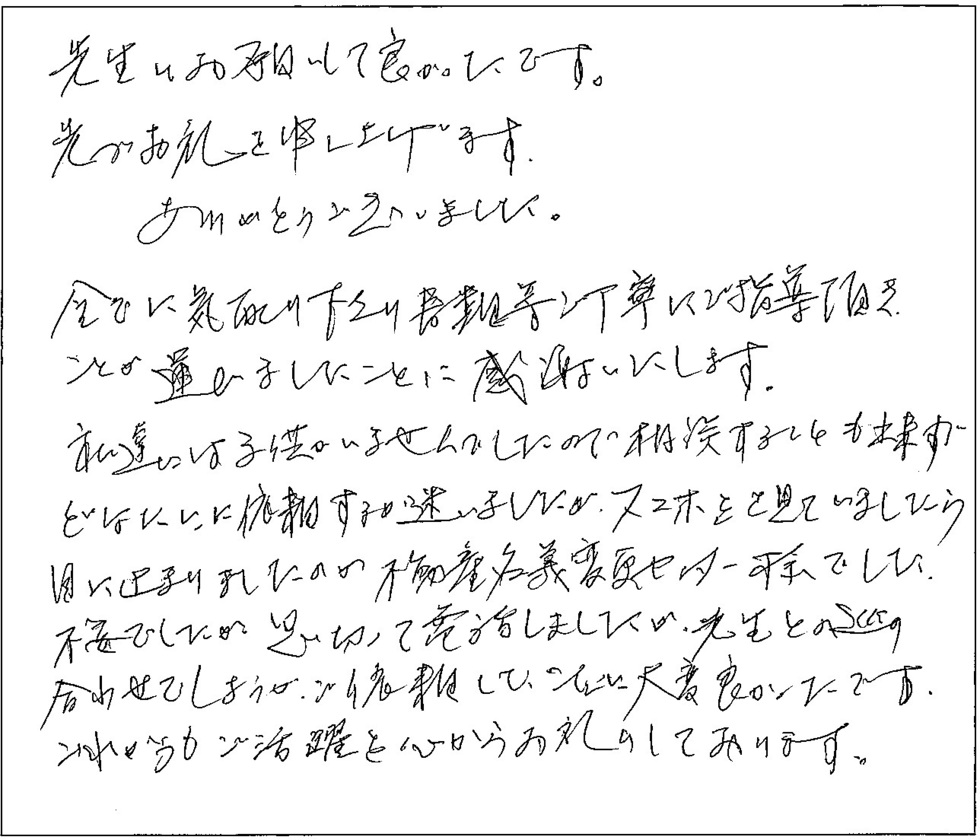 先生にお願いして良かったです。
先づお礼を申し上げます。
ありがとうございました。
全てに気配り下さり書類等ご丁寧にご指導頂き
ことが運びましたことに感謝いたします。
私達には子供がいませんでしたので相談することも出来ず
どなたに依頼するか迷いましたが、スマホを見ていましたら
目に止まりましたのが不動産名義変更センター でした。
不安でしたが思い切って電話しましたが、先生との
合わせでしょうが、ご依頼して、 大変良かったです。
これからもご活躍と心からお礼 しております。